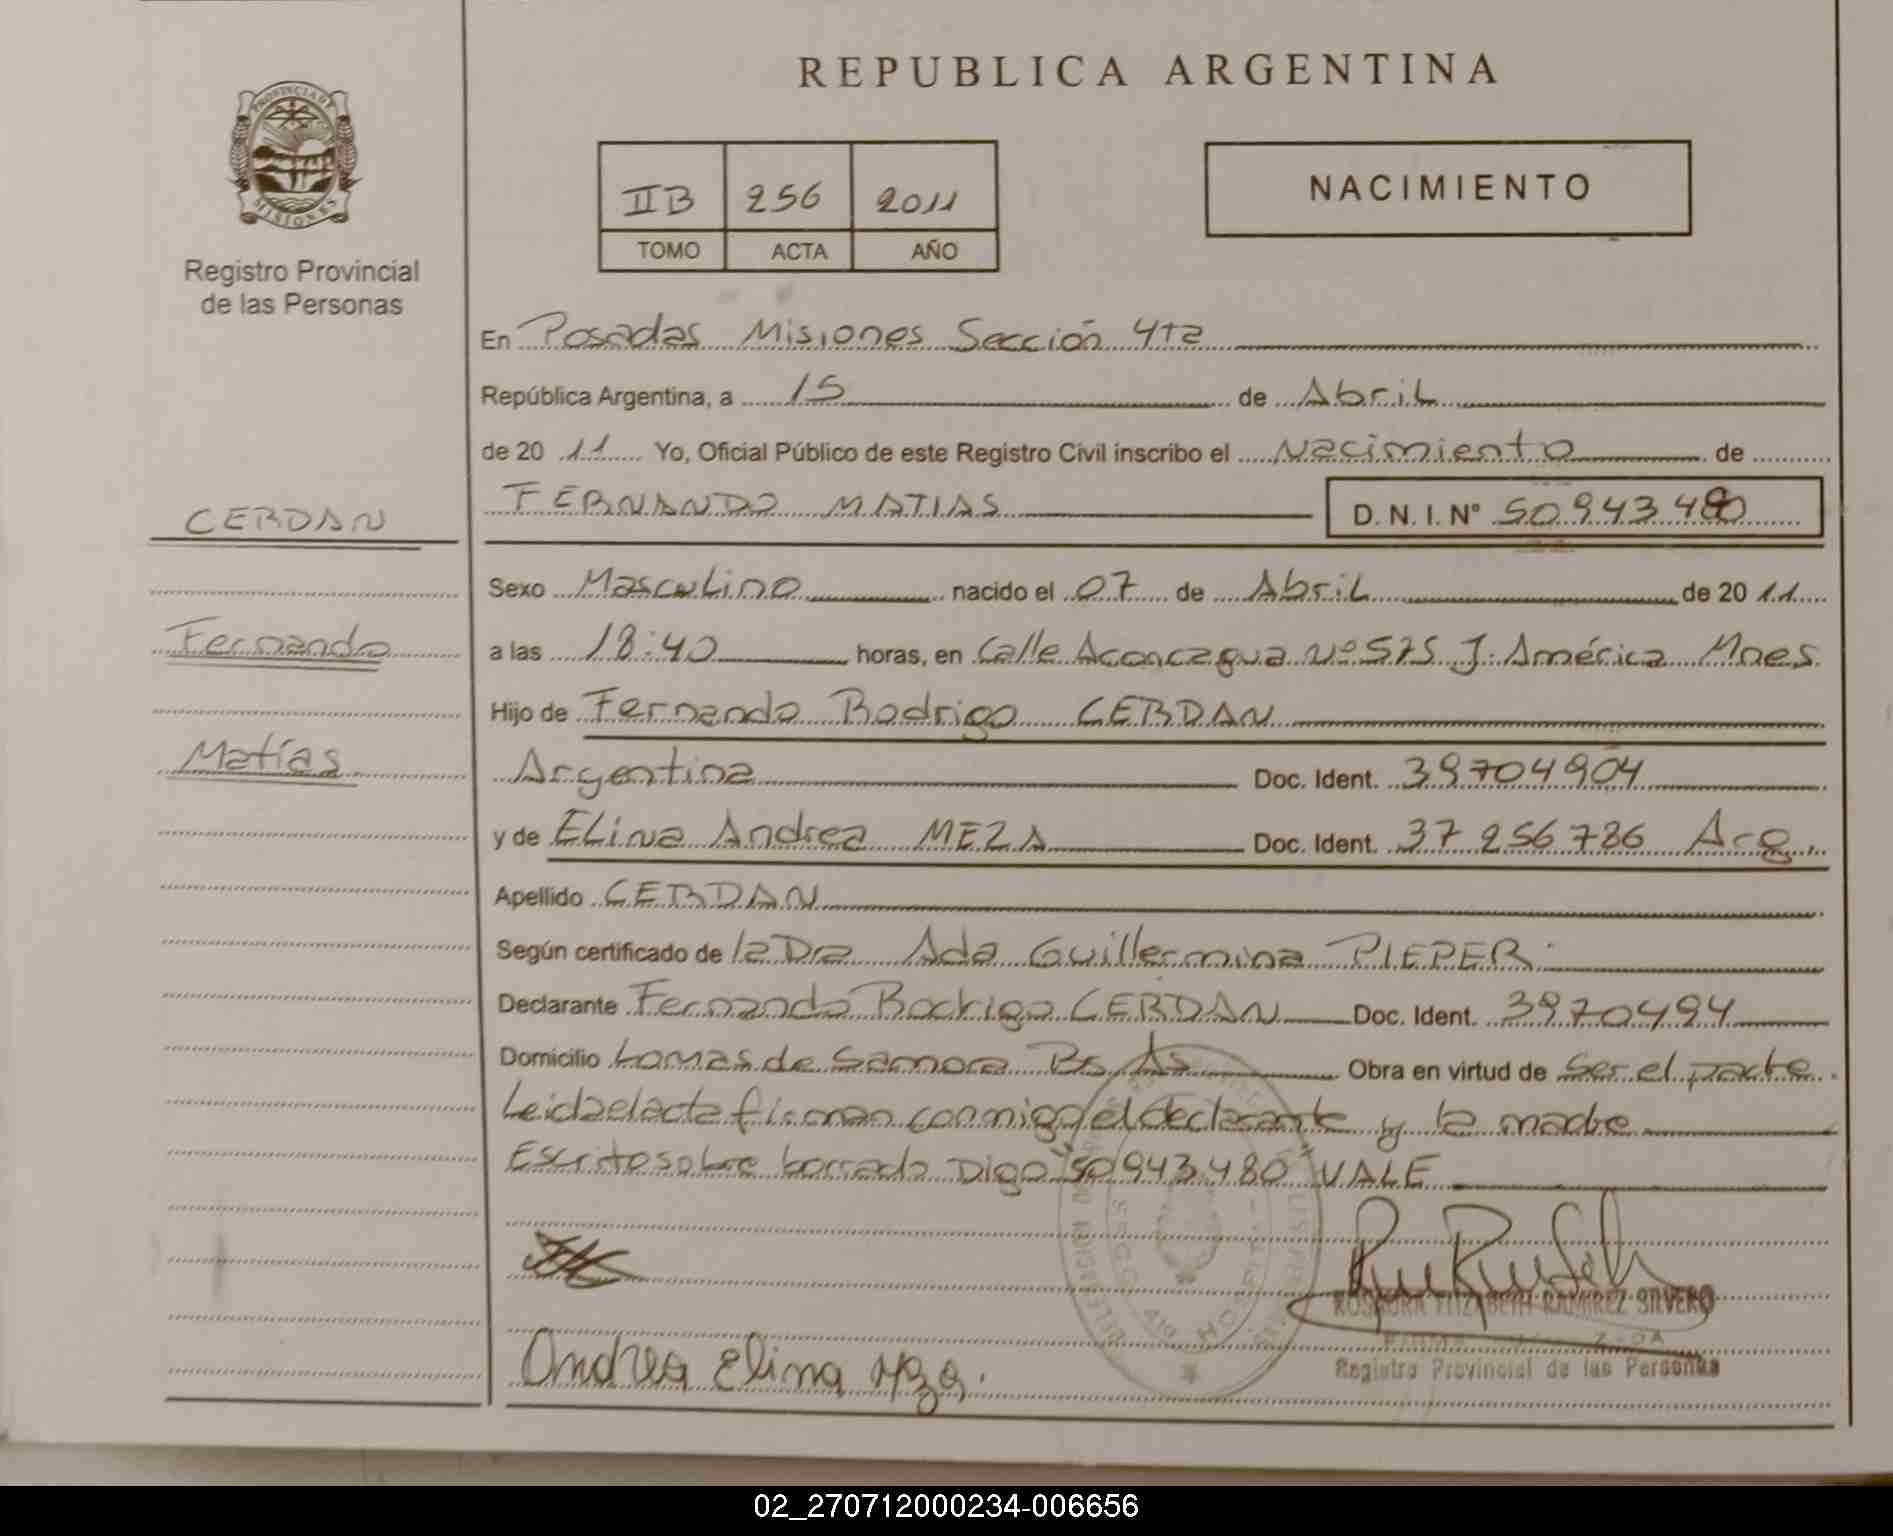 REPUBLICA ARGENTINA
PROVINCIA DE
MISIONES
Registro Provincial
de las Personas
IIB 256 2011
TOMO ACTA AÑO
NACIMIENTO
En Posadas Misiones Sección 4ta
República Argentina, a 15 de Abril
de 2011 Yo, Oficial Público de este Registro Civil inscribo el Nacimiento de
FERNANDO MATIAS D. N. I. N° 50943480
CERDAN
Sexo Masculino nacido el 07 de Abril de 2011
Fernando
a las 18:40 horas, en Calle Aconcagua Nº 575 J. América Mnes
Hijo de Fernando Rodrigo CERDAN
Matías
Argentina Doc. Ident. 39704904
y de ELina Andrea MEZA Doc. Ident. 37 256 786 Arg.
Apellido CERDAN
Según certificado de la Dra Ada Guillermina PIEPER
Declarante Fernando Rodrigo CERDAN Doc. Ident. 3970494
Domicilio Lomas de Samora Bs As Obra en virtud de ser el padre
Leida el acta firman conmigo el declarante y la madre
Escrito sobre borrado Digo "50943.480" VALE
ROSAURA ELIZABETH RAMIREZ SILVERO
Registro Provincial de las Personas
Andrea Elina
02_270712000234-006656